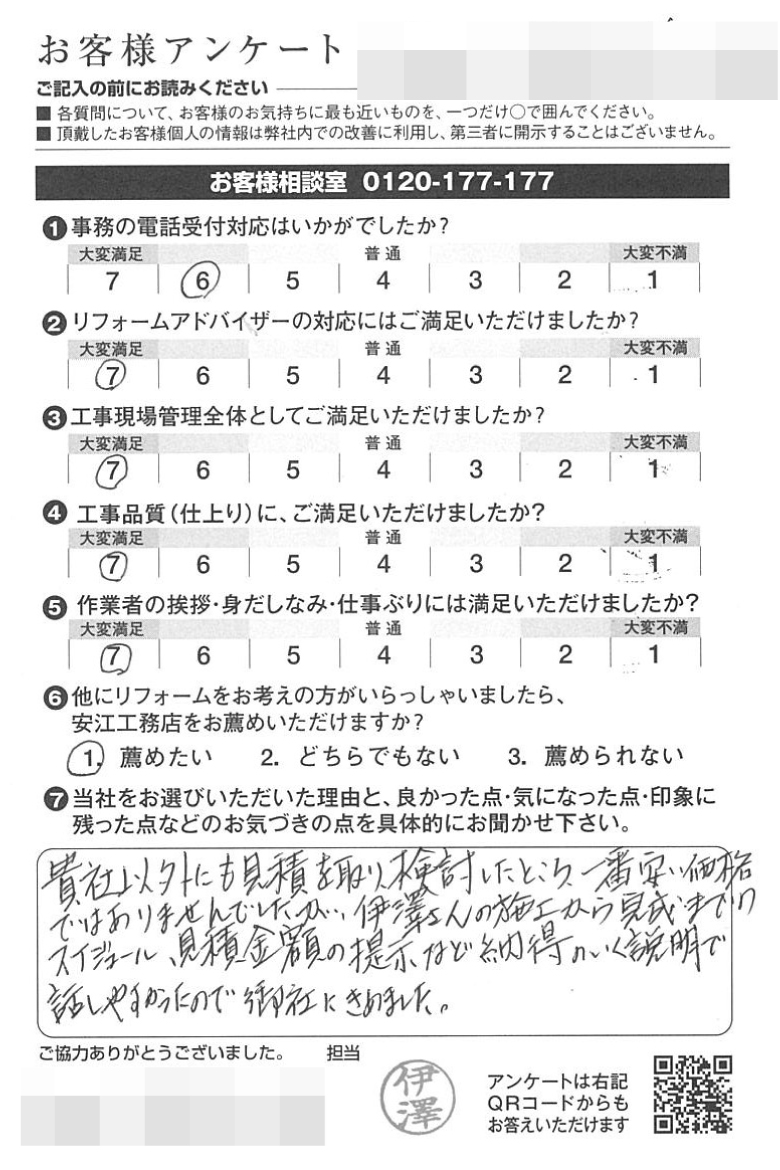 お客様アンケート
ご記入の前にお読みください
■ 各質問について、お客様のお気持ちに最も近いものを、一つだけ○で囲んでください。
■ 頂戴したお客様個人の情報は弊社内での改善に利用し、第三者に開示することはございません。
お客様相談室 0120-177-177
❶事務の電話受付対応はいかがでしたか?
大変満足 普通 大変不満
7 6 5 4 3 2 1
❷リフォームアドバイザーの対応にはご満足いただけましたか?
大変満足 普通 大変不満
7 6 5 4 3 2 1
❸工事現場管理全体としてご満足いただけましたか?
大変満足 普通 大変不満
7 6 5 4 3 2 1
❹工事品質(仕上り)に、ご満足いただけましたか?
大変満足 普通 大変不満
7 6 5 4 3 2 1
❺作業者の挨拶・身だしなみ・仕事ぶりには満足いただけましたか?
大変満足 普通 大変不満
7 6 5 4 3 2 1
❻他にリフォームをお考えの方がいらっしゃいましたら、
安江工務店をお薦めいただけますか?
1. 薦めたい 2. どちらでもない 3. 薦められない
❼当社をお選びいただいた理由と、良かった点・気になった点・印象に
残った点などのお気づきの点を具体的にお聞かせ下さい。
貴社以外にも見積を取り検討したところ、一番安い価格
ではありませんでしたが、伊澤さんの施工から完成までの
スケジュール、見積金額の提示など納得のいく説明で
話しやすかったので御社にきめました。
ご協力ありがとうございました。 担当
伊澤
アンケートは右記
QRコードからも
お答えいただけます